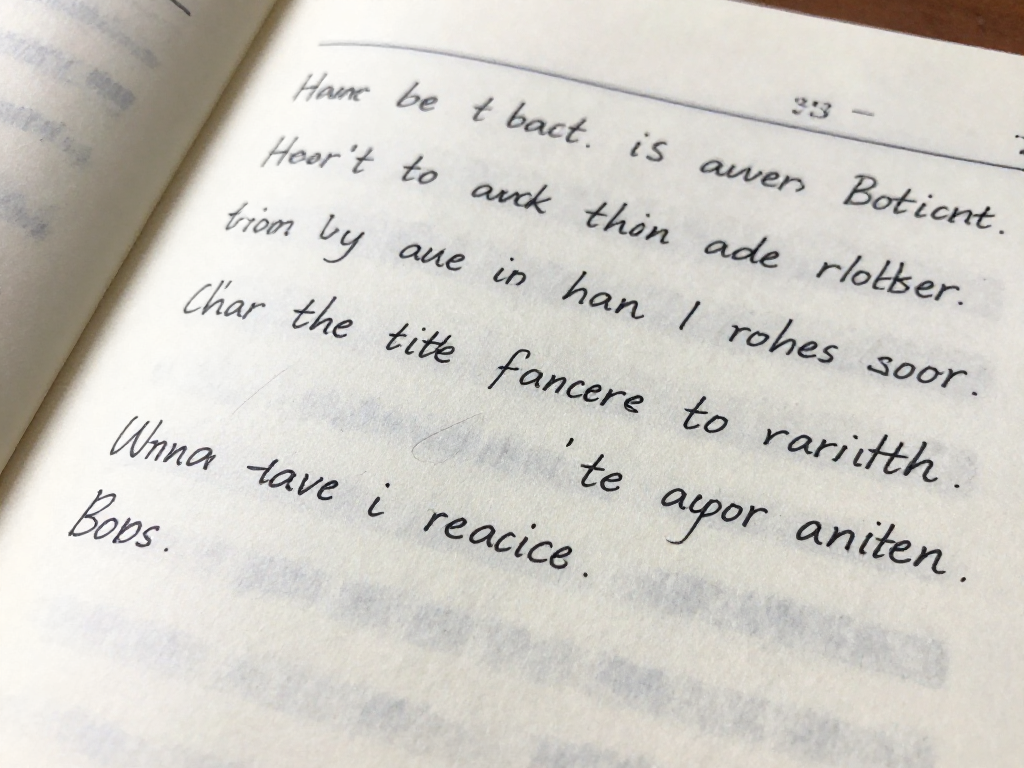 33 -
Hame be t bact. is auvers Boticnt.
Hoor't to auck thon ade rlotser.
triom by aue in han I rohes soor.
Char the title fancere to rariitth.
'te ayor aniten.
Wnna tave i reacice.
Bops.